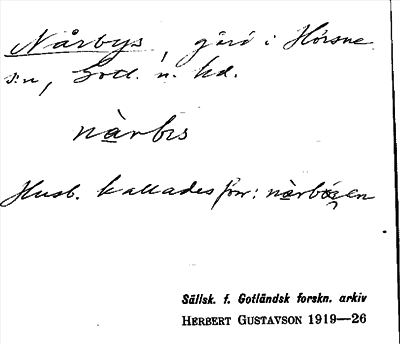 Nårbys, gård i Hörsne
s:n, Gotl. n. hd.
nårbis
Husb. kallades förr: nårbösen
Sällsk. f. Gotländsk forskn. arkiv
HERBERT GUSTAVSON 1919—26